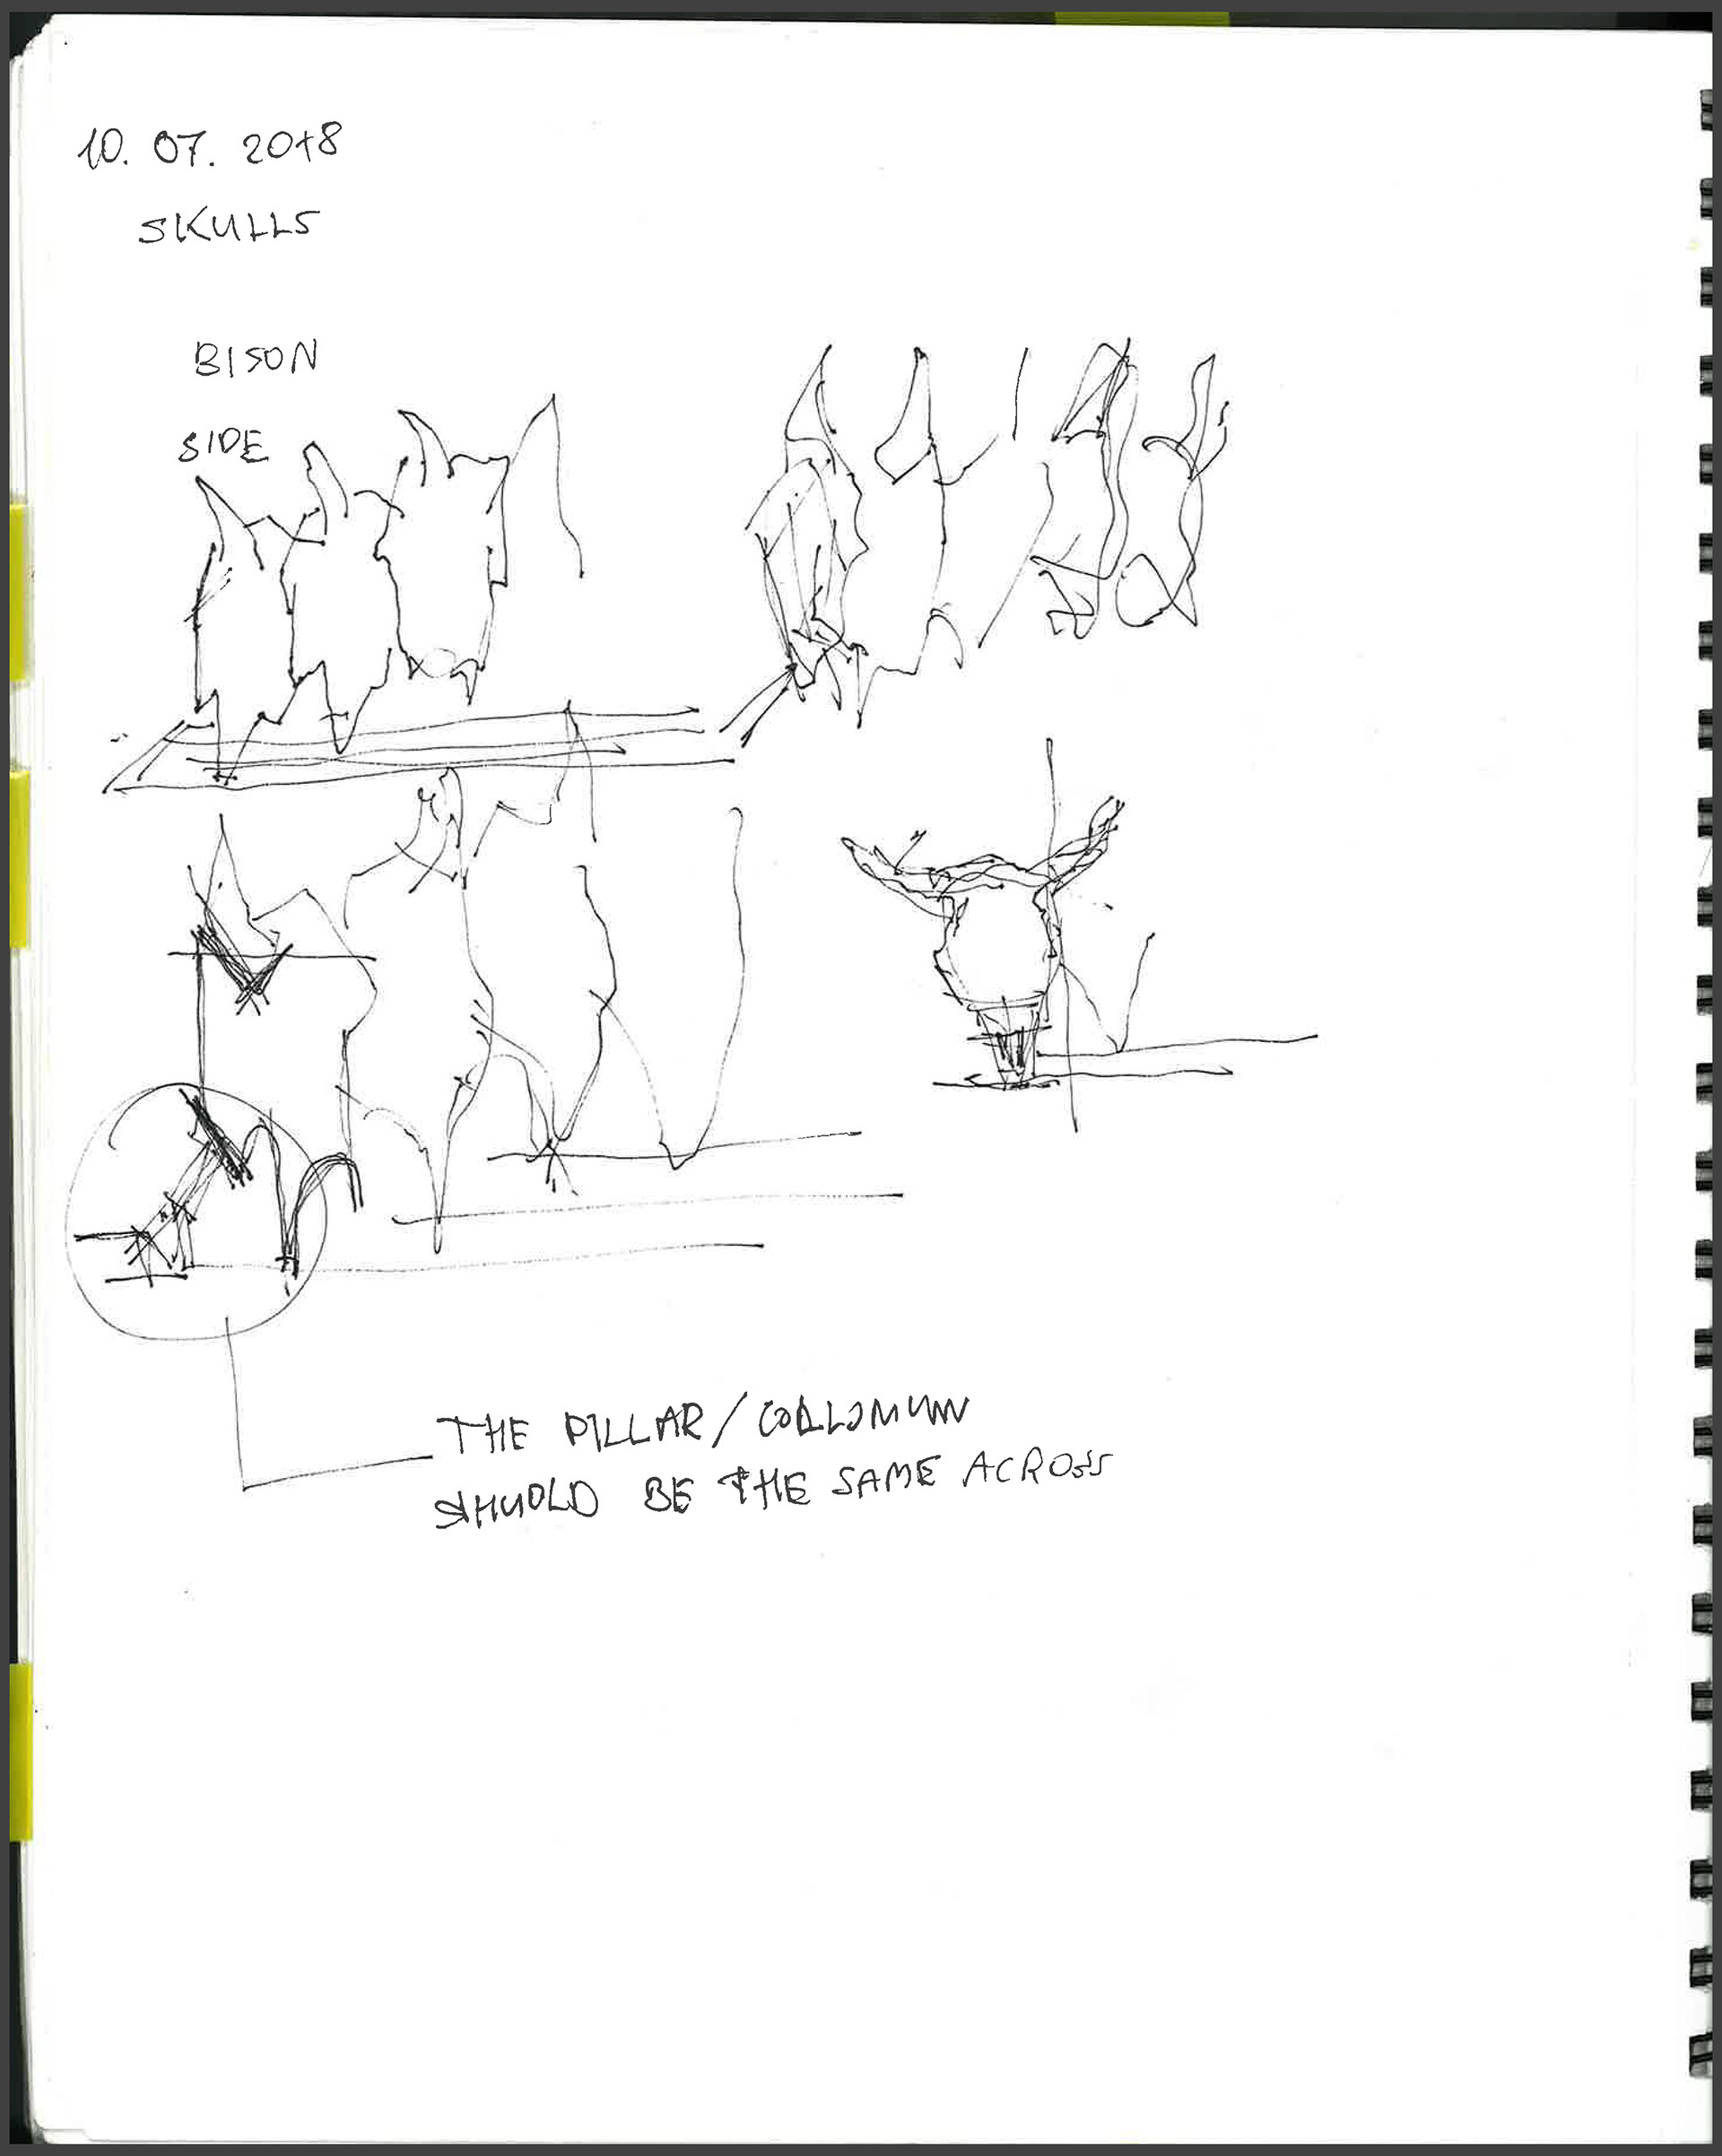 10. 07. 2018
SKULLS
BISON
SIDE
THE PILLAR/COLLOMUN
SHUOLD BE THE SAME ACROSS